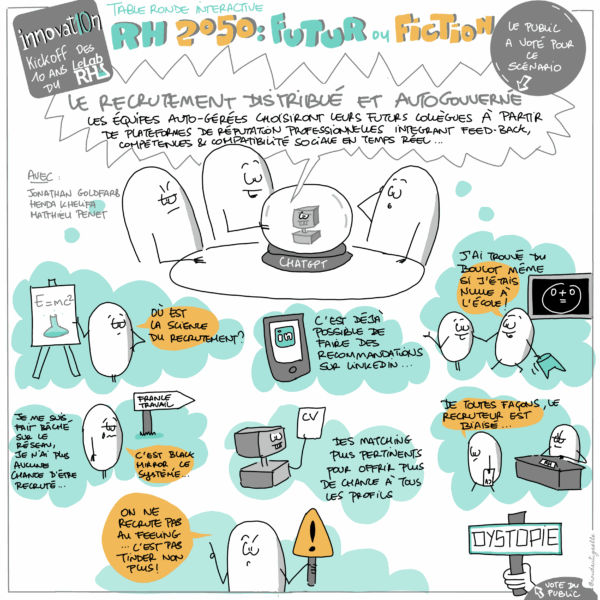 TABLE RONDE INTERACTIVE
RH 2050 : FUTUR OU FICTION
innovat10n
KICKOFF DES
10 ANS LeLab
DU RH
LE PUBLIC
A VOTÉ POUR
CE
SCÉNARIO
LE RECRUTEMENT DISTRIBUÉ ET AUTOGOUVERNÉ
LES ÉQUIPES AUTO-GÉRÉES CHOISIRONT LEURS FUTURS COLLÈGUES À PARTIR
DE PLATEFORMES DE RÉPUTATION PROFESSIONNELLES INTEGRANT FEED-BACK,
COMPÉTENCES & COMPATIBILITÉ SOCIALE EN TEMPS RÉEL...
AVEC :
JONATHAN GOLDFARB
HENDA KHELIFA
MATTHIEU PENET
CHATGPT
E=mc²
OÙ EST
LA SCIENCE
DU RECRUTEMENT?
in
C'EST DÉJÀ
POSSIBLE DE
FAIRE DES
RECOMMANDATIONS
SUR LINKEDIN...
J'AI TROUVÉ DU
BOULOT MÊME
SI J'ÉTAIS
NULLE À
L'ÉCOLE!
0+0
=
JE ME SUIS
FAIT BÂCHÉ
SUR LE
RÉSEAU,
JE N'AI PLUS
AUCUNE
CHANCE D'ÊTRE
RECRUTÉ...
FRANCE
TRAVAIL
C'EST BLACK
MIRROR, CE
SYSTÈME...
CV
DES MATCHING
PLUS PERTINENTS
POUR OFFRIR PLUS
DE CHANCE À TOUS
LES PROFILS
DE TOUTES FAÇONS, LE
RECRUTEUR EST
BIAISÉ...
ON NE
RECRUTE PAS
AU FEELING
... C'EST PAS
TINDER NON
PLUS!
!
DYSTOPIE
VOTE DU
PUBLIC